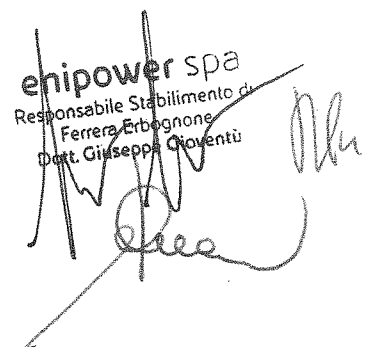 enipower spa
Responsabile Stabilimento di
Ferrera Erbognone
Dott. Giuseppe Gioventù